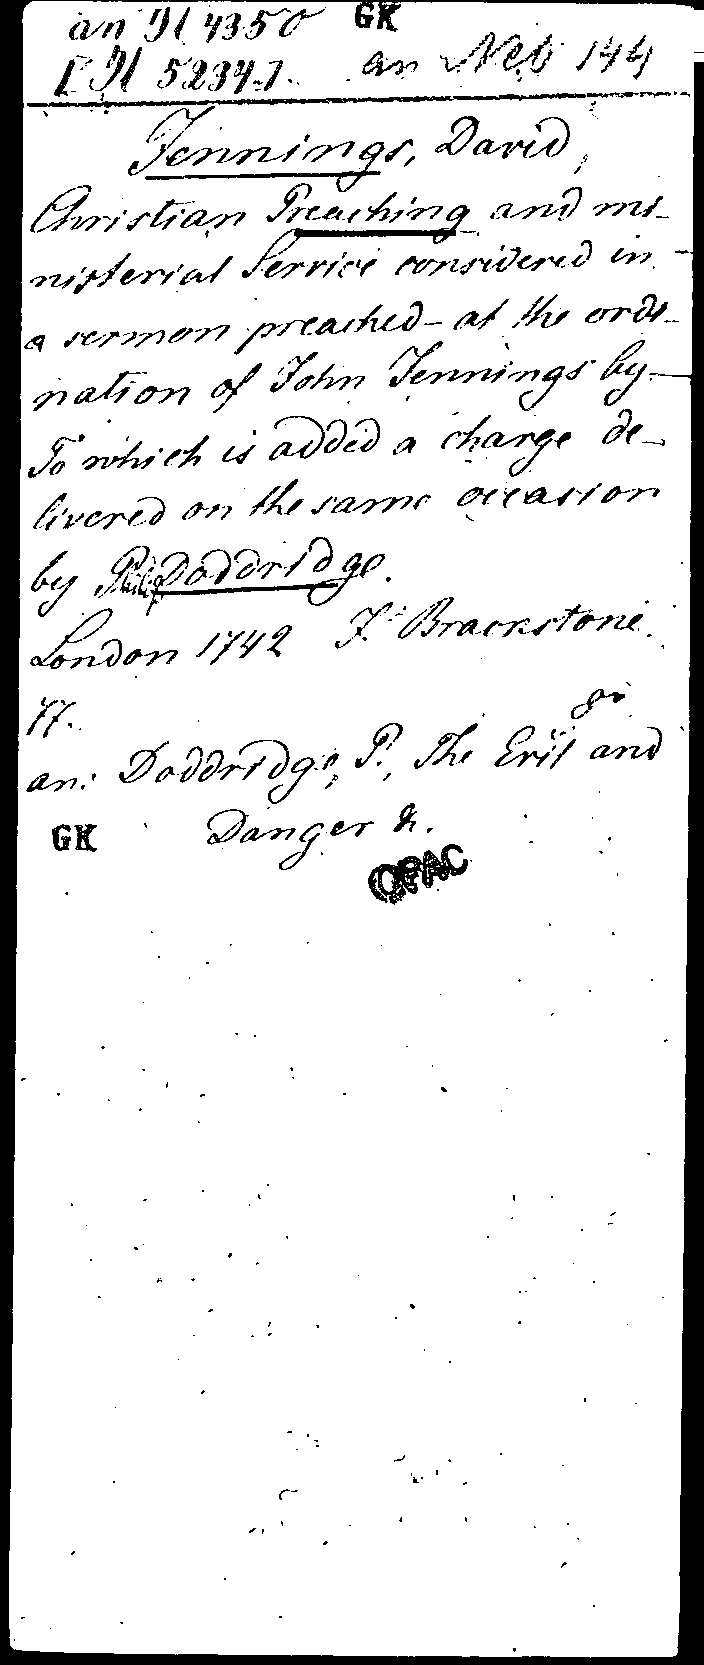 an 4350 GK
52347. an 144
Jennings, David,
Christian Preaching and mi-
nisterial Service considered in
a sermon preached - at the ordi-
nation of John Jennings by-
To which is added a charge de-
livered on the same occasion
by Philip Doddridge.
London 1742 J. Brackstone.
77. 8o
an: Doddridge, P., The Evil and
GK Danger &.
OPAC